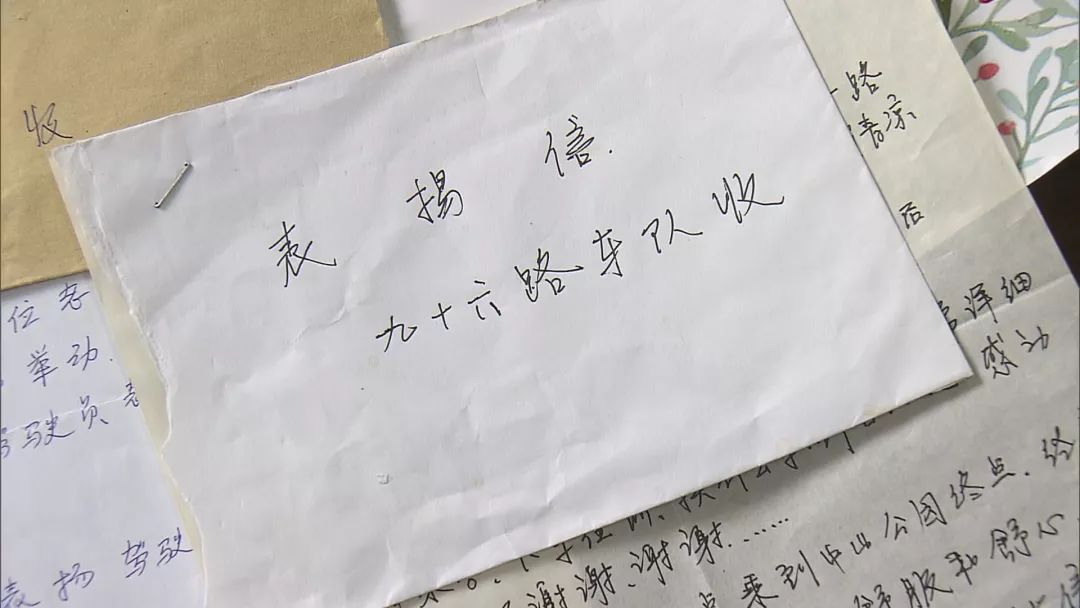 收
表扬信.
九十六路车队收
路
清凉
后
详细
感动
位老
举动.
驾驶员表
表扬驾驶
谢谢、谢谢.……
来到中山公园终点.终
舒服和舒心